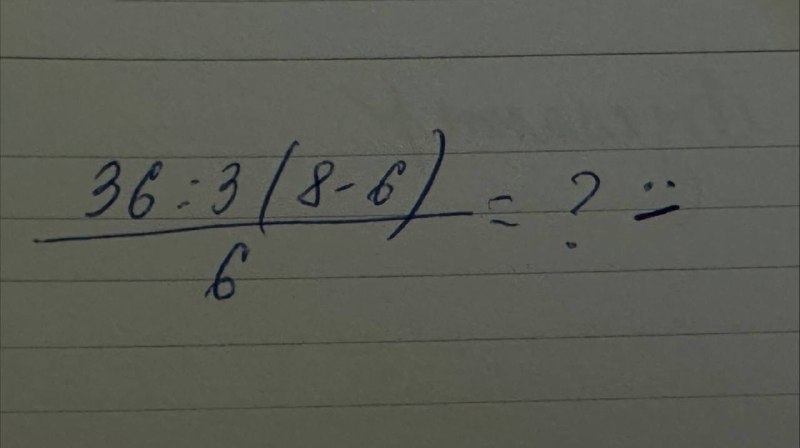 36:3(8-6)
6
= ?